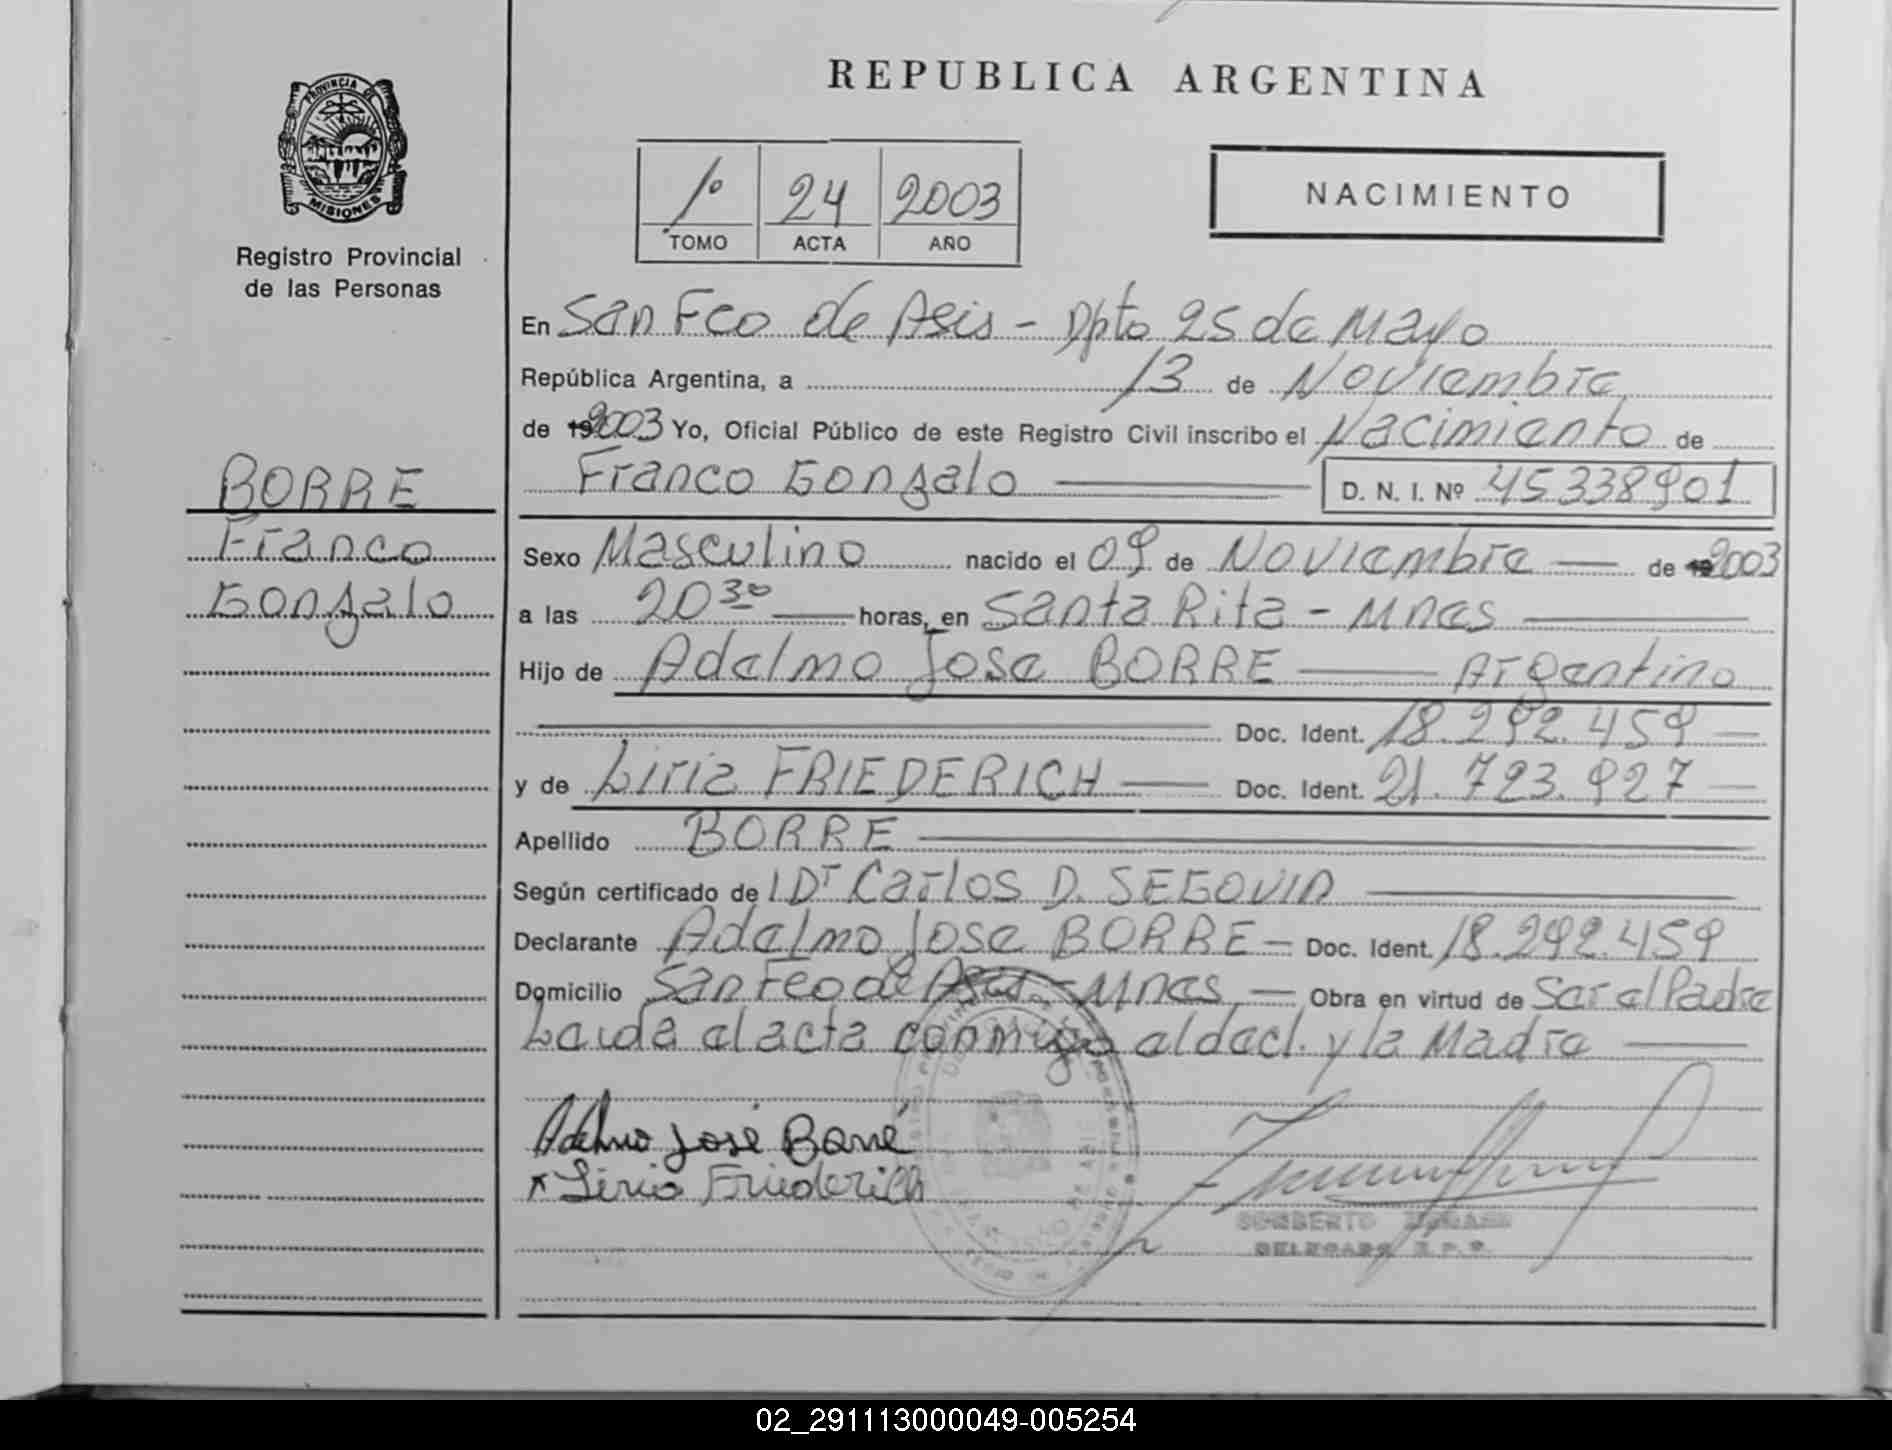 REPUBLICA ARGENTINA
PROVINCIA DE
MISIONES
Registro Provincial
de las Personas
1º 24 2003
TOMO ACTA AÑO
NACIMIENTO
En San Fco de Asis - Dpto 25 de Mayo
República Argentina, a 13 de Noviembre
de 2003 Yo, Oficial Público de este Registro Civil inscribo el Nacimiento de
Franco Gonzalo D. N. I. Nº 45338901
BORRE
Franco
Gonzalo
Sexo Masculino nacido el 09 de Noviembre de 2003
a las 20 30 horas, en Santa Rita - Mnes
Hijo de Adelmo Jose BORRE Argentino
Doc. Ident. 18.292.459
y de Liria FRIEDERICH Doc. Ident. 21.723.927
Apellido BORRE
Según certificado de l Dr Carlos D. SEGOVIA
Declarante Adelmo Jose BORRE - Doc. Ident. 18.292.459
Domicilio San Fco de Asis - Mnes - Obra en virtud de Ser el Padre
Leida el acta conmigo el decl. y la Madre
Adelmo José Borré
x Liria Friederich
DELEGADO R. P. P.
02_291113000049-005254